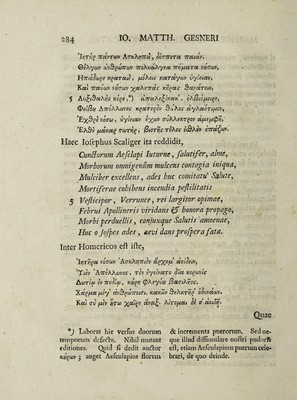 284 IO. MATTH. GESNERI
Ἰητὴρ πάντων Ἀσκληπιὲ, δέσποτα παιὰν.
Θέλγων ἀνθρώπων πολυαλγέα πήματα νούσων,
Ἠπιόδωρε κραταιὲ, μόλοις κατάγων ὑγίειαν,
Καὶ παύων νούσους χαλεπὰς κῆρας θανάτοιο,
5 Αὐξιθαλὲς κόρε,*) ἀπαλεξίκακ', ὀλβιόμοιρε,
Φοίβου Ἀπόλλωνος κρατερὸν θάλος ἀγλαότιμον,
Ἐχθρὲ νόσων, ὑγίειαν ἔχων σύλλεκτρον ἀμεμφῆ,
Ἐλθὲ μάκαρ σωτὴρ, βιοτῆς τέλος ἐσθλὸν ὀπάζων.
Haec Iosephus Scaliger ita reddidit,
Cunctorum Aesclapi Iuturne, salutifer, alme,
Morborum omnigenûm mulcens contagia iniqua,
Mulciber excellens, ades huc comitatu' Salute,
Mortiferas cohibens incendia pestilitatis
5 Vesticipor, Verrunce, rei largitor opimae,
Februi Apollineris viridans & honora propago,
Morbi perduellis, conjuxque Salutis amoenae,
Huc o sospes ades, aevi dans prospera fata.
Inter Homericos est iste,
Ἰητῆρα νόσων Ἀσκληπιὸν ἄρχομ' ἀείδειν,
Ὑὸν Ἀπόλλωνος, τὸν ἐγείνατο δῖα κορωνὶς
Δωτίῳ ἐν πεδίῳ, κόρη Φλεγύα βασιλῆος,
Χάρμα μέγ' ἀνθρώποισι, κακῶν θελκτῆρ' ὀδυνάων.
Καὶ σὺ μὲν ὅτω χαῖρε ἄναξ. λίτομαι δέ σ' ἀοιδῇ.
Quae
*) Laborat hic versus duorum
temporum defectu. Nihil mutant
editiones. Quid si dedit auctor
κόρων; auget Aesculapius florem
& incrementa puerorum. Sed ne-
que illud dissimulare nostri pudoris
est, etiam Aesculapium puerum cele-
brari, de quo deinde.